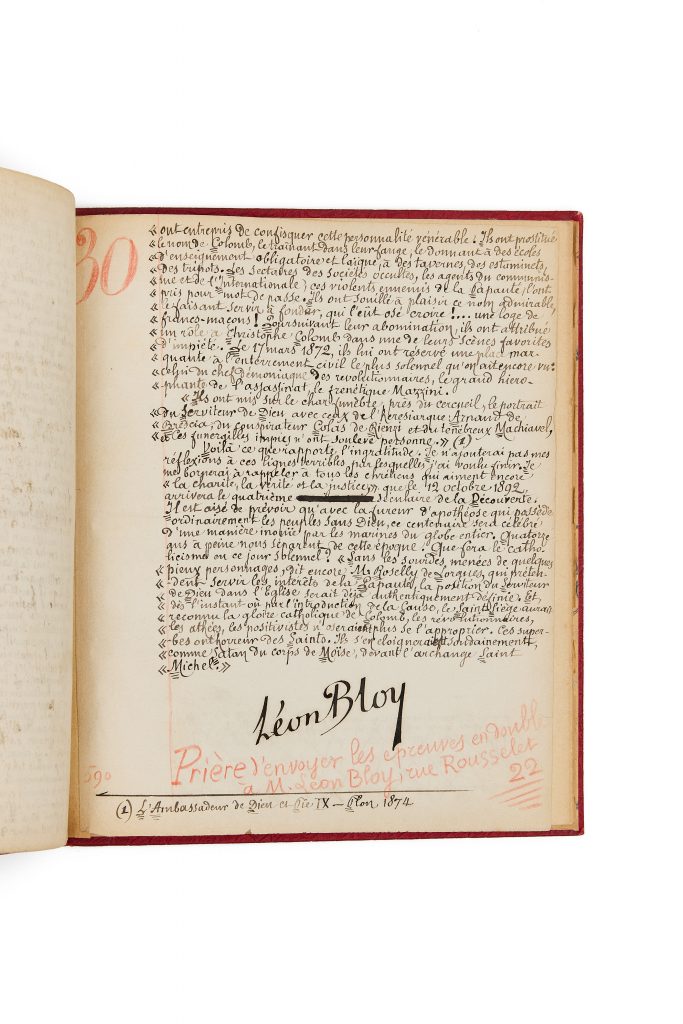 30
« ont entrepris de confisquer cette personnalité vénérable. Ils ont prostitué
« le nom de Colomb, le traînant dans leur fange, le donnant à des écoles
« d'enseignement obligatoire et laïque, à des tavernes, des estaminets,
« des tripots. Les sectaires des sociétés occultes, les agents du communis-
« me et de l'Internationale, ces violents ennemis de la Papauté, l'ont
« pris pour mot de passe. Ils ont souillé à plaisir ce nom admirable,
« le faisant servir à fonder, qui l'eût osé croire !... une loge de
« francs-maçons ! Poursuivant leur abomination, ils ont attribué
« un rôle à Christophe Colomb dans une de leurs scènes favorites
« d'impiété. Le 17 mars 1872, ils lui ont réservé une place mar-
« quante à l'enterrement civil le plus solennel qu'on ait encore vu:
« celui du chef démoniaque des révolutionnaires, le grand hiéro-
« phante de l'assassinat, le frénétique Mazzini.
« Ils ont mis sur le char funèbre, près du cercueil, le portrait
« du Serviteur de Dieu avec ceux de l'hérésiarque Arnaud de
« Brescia, du conspirateur Colas de Rienzi et du ténébreux Machiavel,
« et ces funérailles impies n'ont soulevé personne. » (1)
Voilà ce que rapporte l'ingratitude. Je n'ajouterai pas mes
réflexions à ces lignes terribles par lesquelles j'ai voulu finir. Je
me bornerai à rappeler à tous les chrétiens qui aiment encore
« la charité, la vérité et la justice, » que le 12 octobre 1892
arrivera le quatrième séculaire de la Découverte.
Il est aisé de prévoir qu'avec la fureur d'apothéose qui possède
ordinairement les peuples sans Dieu, ce centenaire sera célébré
d'une manière inouïe par les marines du globe entier. Quatorze
ans à peine nous séparent de cette époque. Que fera le catho-
licisme en ce jour solennel ? « Sans les sourdes menées de quelques
« pieux personnages, dit encore M. Roselly de Lorgues, qui préten-
« dent servir les intérêts de la Papauté, la position du Serviteur
« de Dieu dans l'Église serait déjà authentiquement définie. Et,
« dès l'instant où par l'introduction de la Cause, le Saint-Siège aurait
« reconnu la gloire catholique de Colomb, les révolutionnaires,
« les athées, les positivistes n'oseraient plus se l'approprier. Ces super-
« bes ont horreur des Saints. Ils s'en éloigneraient soudainement,
« comme Satan du corps de Moïse, devant l'archange Saint
« Michel. »
Léon Bloy
Prière d'envoyer les épreuves en double
à M. Léon Bloy, rue Rousselet
22
590
(1) L'Ambassadeur de Dieu et Pie IX — Plon 1874